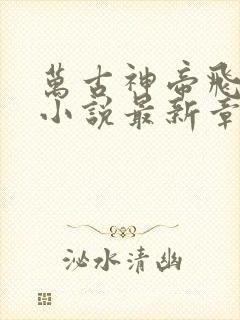 萬古神帝飛
小說最新章
泌水清幽